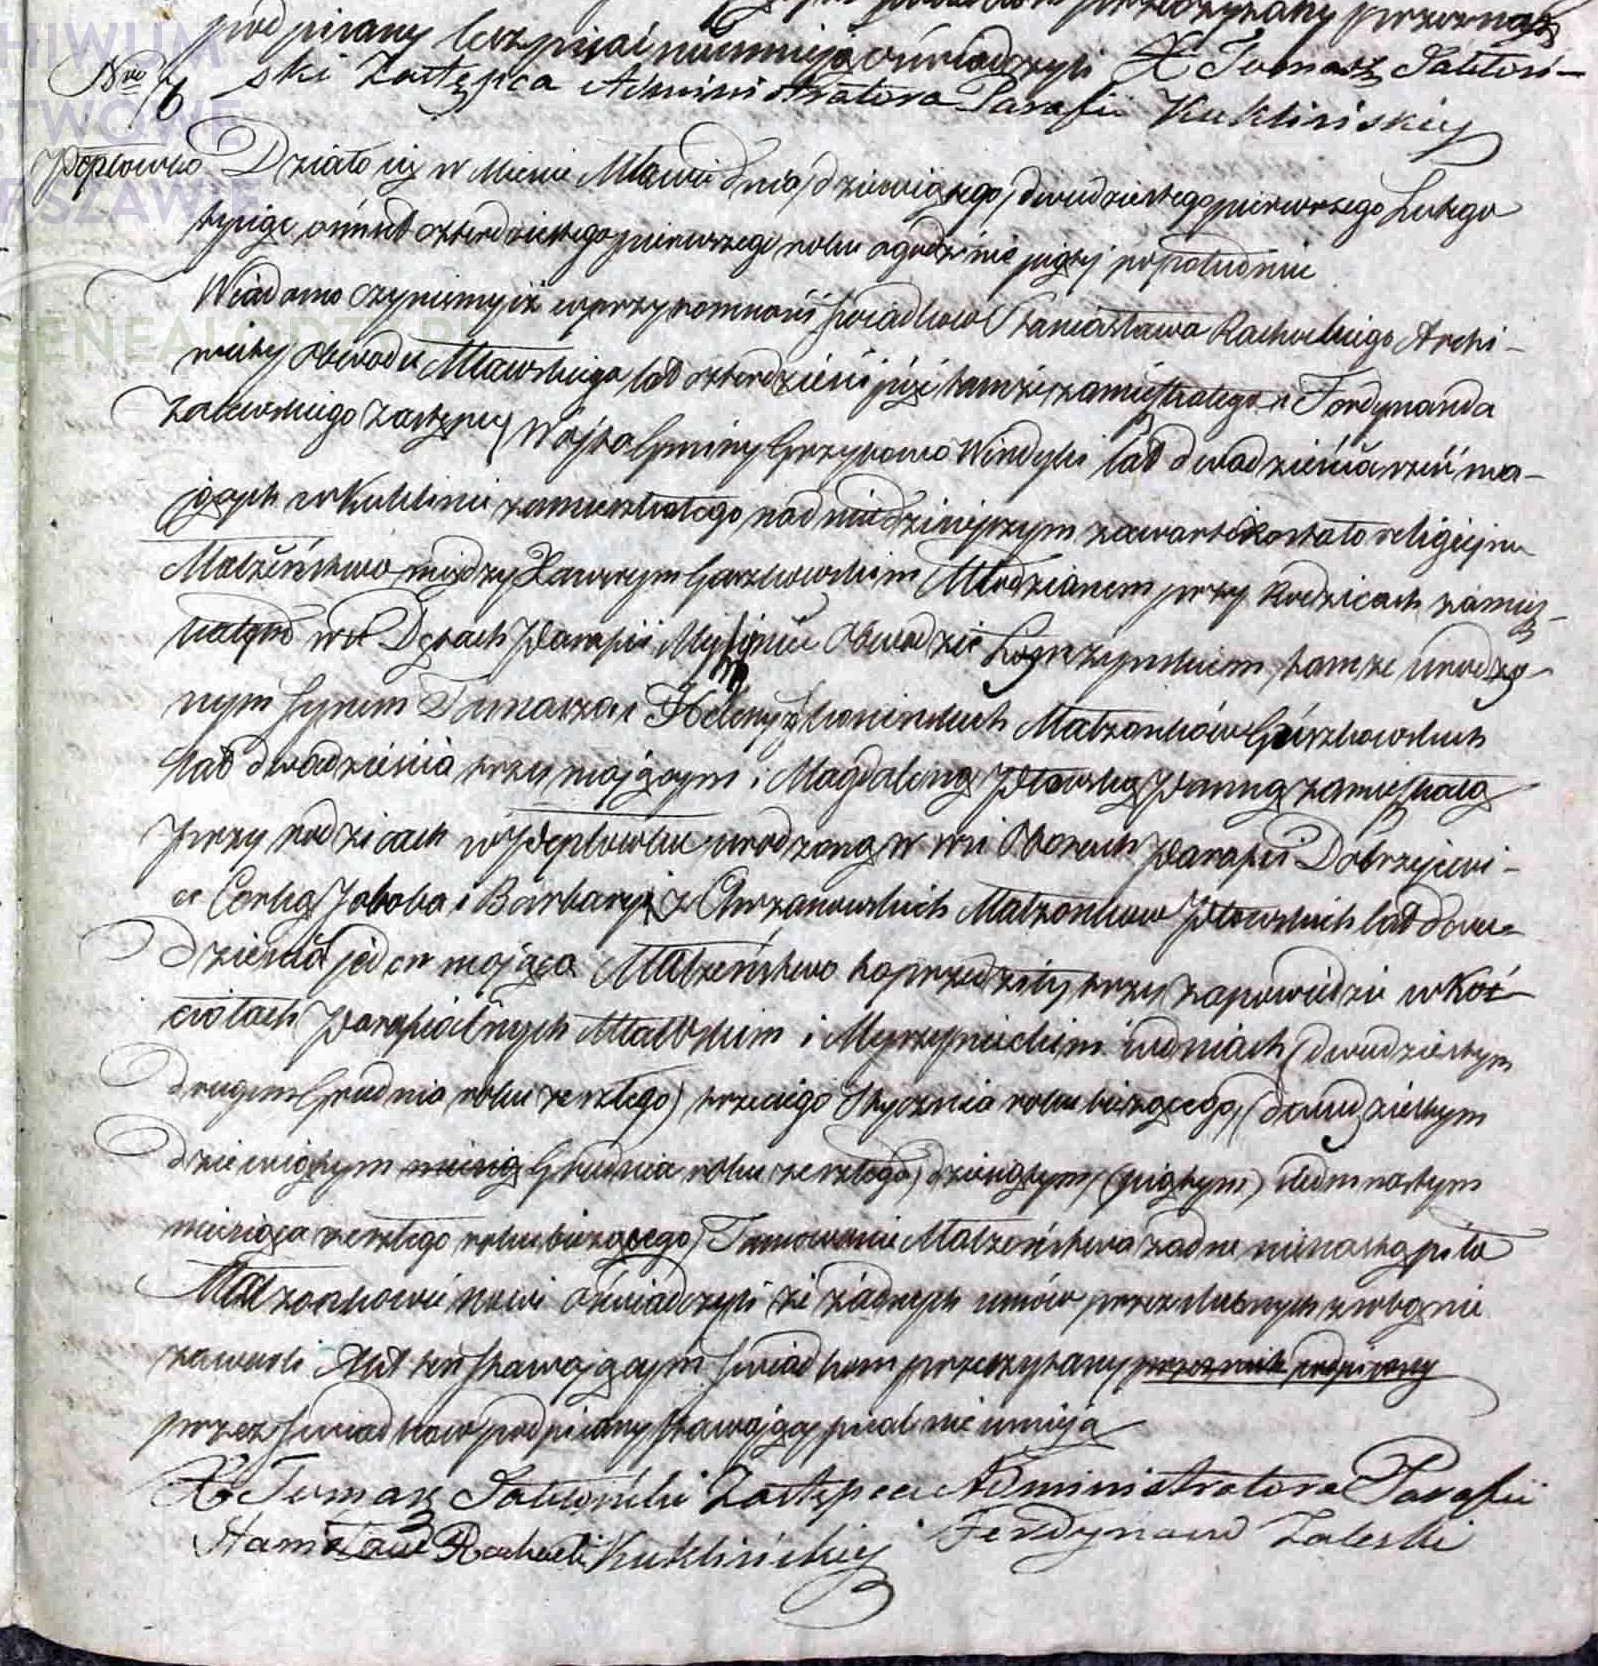 podpisany bez pisać nieumieją oświadczyli X Tomasz Sałkowi-
ski Zastępca Administratora Parafii Kuklińskiey
Nro 6
Pepłowko Działo się w Mieście Mławie dnia dziewiątego/dwudziestego pierwszego Lutego
tysiąc ośmset czterdziestego pierwszego roku o godzinie piątej popołudniu
Wiadomo czyniemy iż w przytomności świadkow Stanisława Rachockiego Archi-
wisty Obwodu Mławskiego lat czterdzieści pięć tamże zamieszkałego i Ferdynanda
Zalewskiego zastępcy Wójta Gminy Grzybowo Windyki lat dwadzieścia sześć ma-
jących w Kuklinie zamieszkałego, na dniu dzisiejszym zawarte zostało religijne
Małżeństwo między Xawerym Gorzkowskim Młodzianem przy Rodzicach zamiesz-
kałym we wsi Dętach Parafii Myszyniec Obwodzie tamże urodzo-
nym synem Tomasza i Heleny z Małżonków Górzkowskich
lat dwadzieścia trzy mającym i Magdaleną Pławską Panną zamieszkałą
przy rodzicach w Pepłowku urodzoną w wsi Oborach Parafii Dobrzejewi-
ce Corką Jakoba i Barbary z Chrzanowskich Małżonkow Pławskich lat dwa-
dzieścia jeden mająca Małżeństwo to poprzedziły trzy zapowiedzie w Koś-
ciołach Parafialnych Mławskim i Myszynieckim w dniach (dwudziestym
drugim Grudnia roku zeszłego) trzeciego Stycznia roku bieżącego, (dwudziestym
dziewiątym Grudnia roku zeszłego) dziesiątym, (piątym) siedmnastym
miesiąca zeszłego roku bieżącego) Tamowanie Małżeństwa żadne nie nastąpiło
Małżonkowie nowi oświadczyli że żadnych umów przedślubnych z sobą nie
zawarli Akt ten stawającym świadkom przeczytany przez nich podpisany
przez świadkow podpisany stawający pisać nie umieją
X Tomasz Sałkowski Zastępca Administratora Parafii
Stanisław Rachocki Kuklińskiey Ferdynand Zaleski